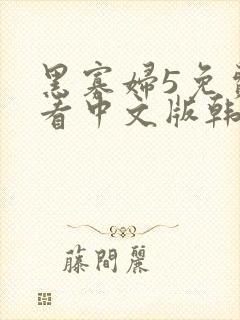 黑寡婦5免費
看中文版韩
藤間麗